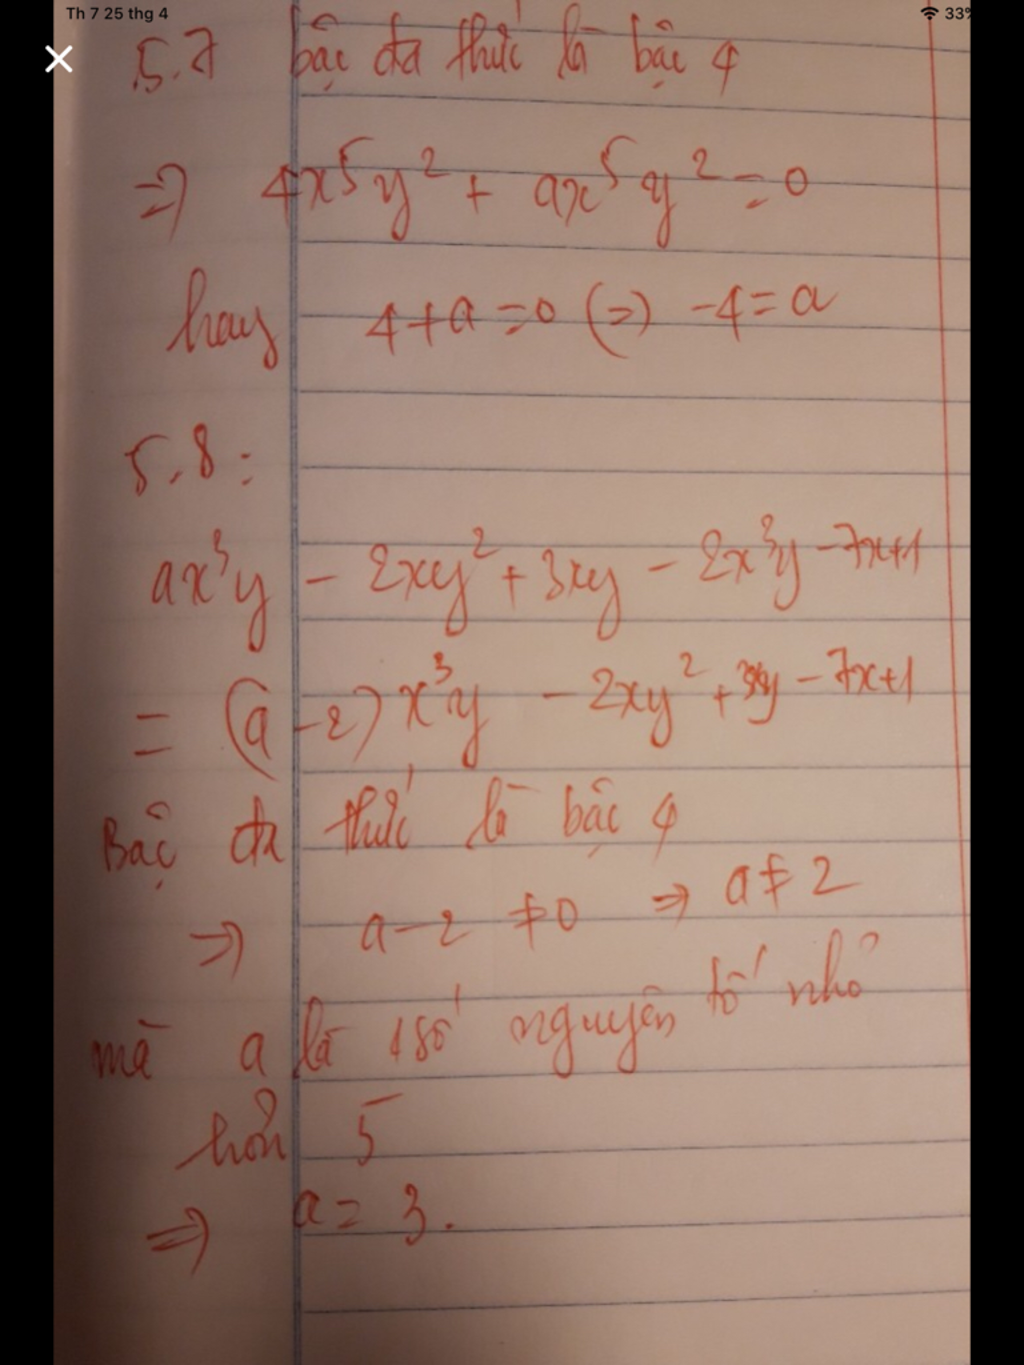 Th 7 25 thg 4
33%
5.7 bậc đa thức là bậc 4
=> 4x⁵y² + ax⁵y² = 0
hay 4+a=0 (=) -4=a
5.8:
ax³y - 2xy² + 3xy - 2x³y - 7x+1
= (a-2) x³y - 2xy² + 3xy - 7x+1
Bậc đa thức là bậc 4
=> a-2 ≠0 => a≠2
mà a là 1 số nguyên tố nhỏ
hơn 5
=> a = 3.